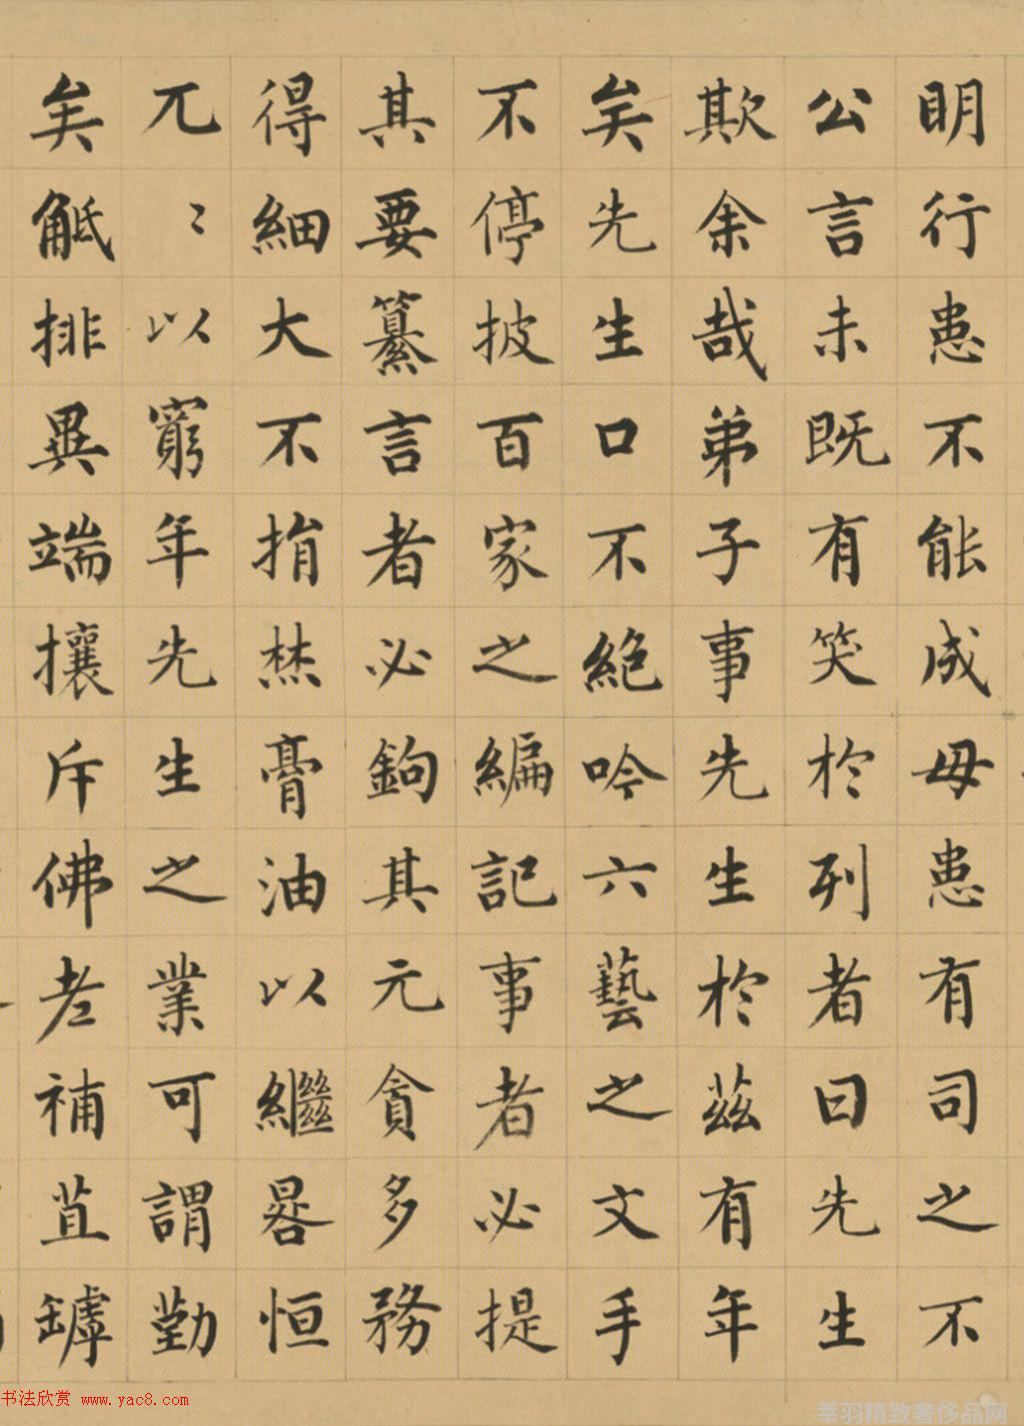 明行患不能成毋患有司之不
公言未既有笑於列者曰先生
欺余哉弟子事先生於茲有年
矣先生口不絕吟六藝之文手
不停披百家之編記事者必提
其要纂言者必鉤其元貪多務
得細大不捐焚膏油以繼晷恒
兀〻以窮年先生之業可謂勤
矣觝排異端攘斥佛老補苴罅
书法欣赏 www.yac8.com
莘羽精致奢侈品网